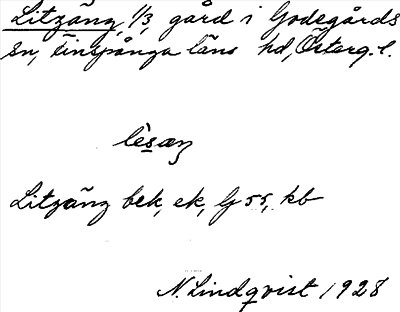 Litzäng, 1/3, gård i Godegårds
sn, Finspånga läns hd, Österg.l.
lèsæŋ
Litzäng bek, ek, G 55, kb
N. Lindqvist 1928